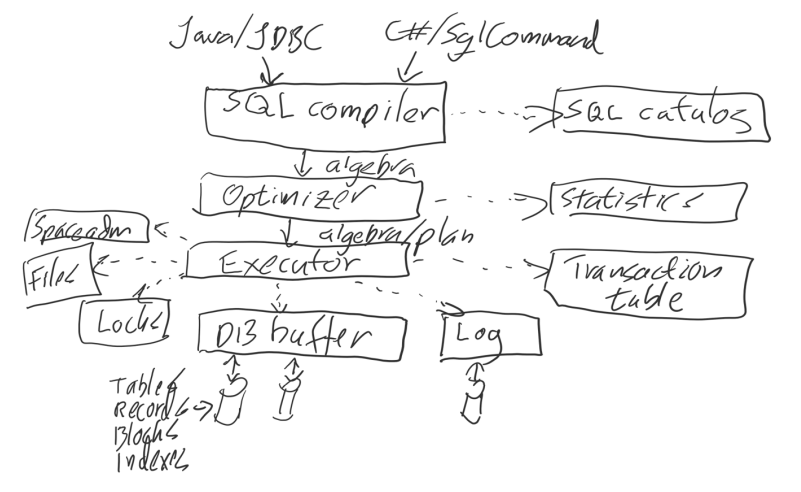 Java/JDBC
C#/SqlCommand
SQL compiler
SQL catalog
algebra
Optimizer
Statistics
Spaceadm
algebra/plan
Files
Executor
Transaction
table
Locks
DB buffer
Log
Tables
Records
Blocks
Indexes